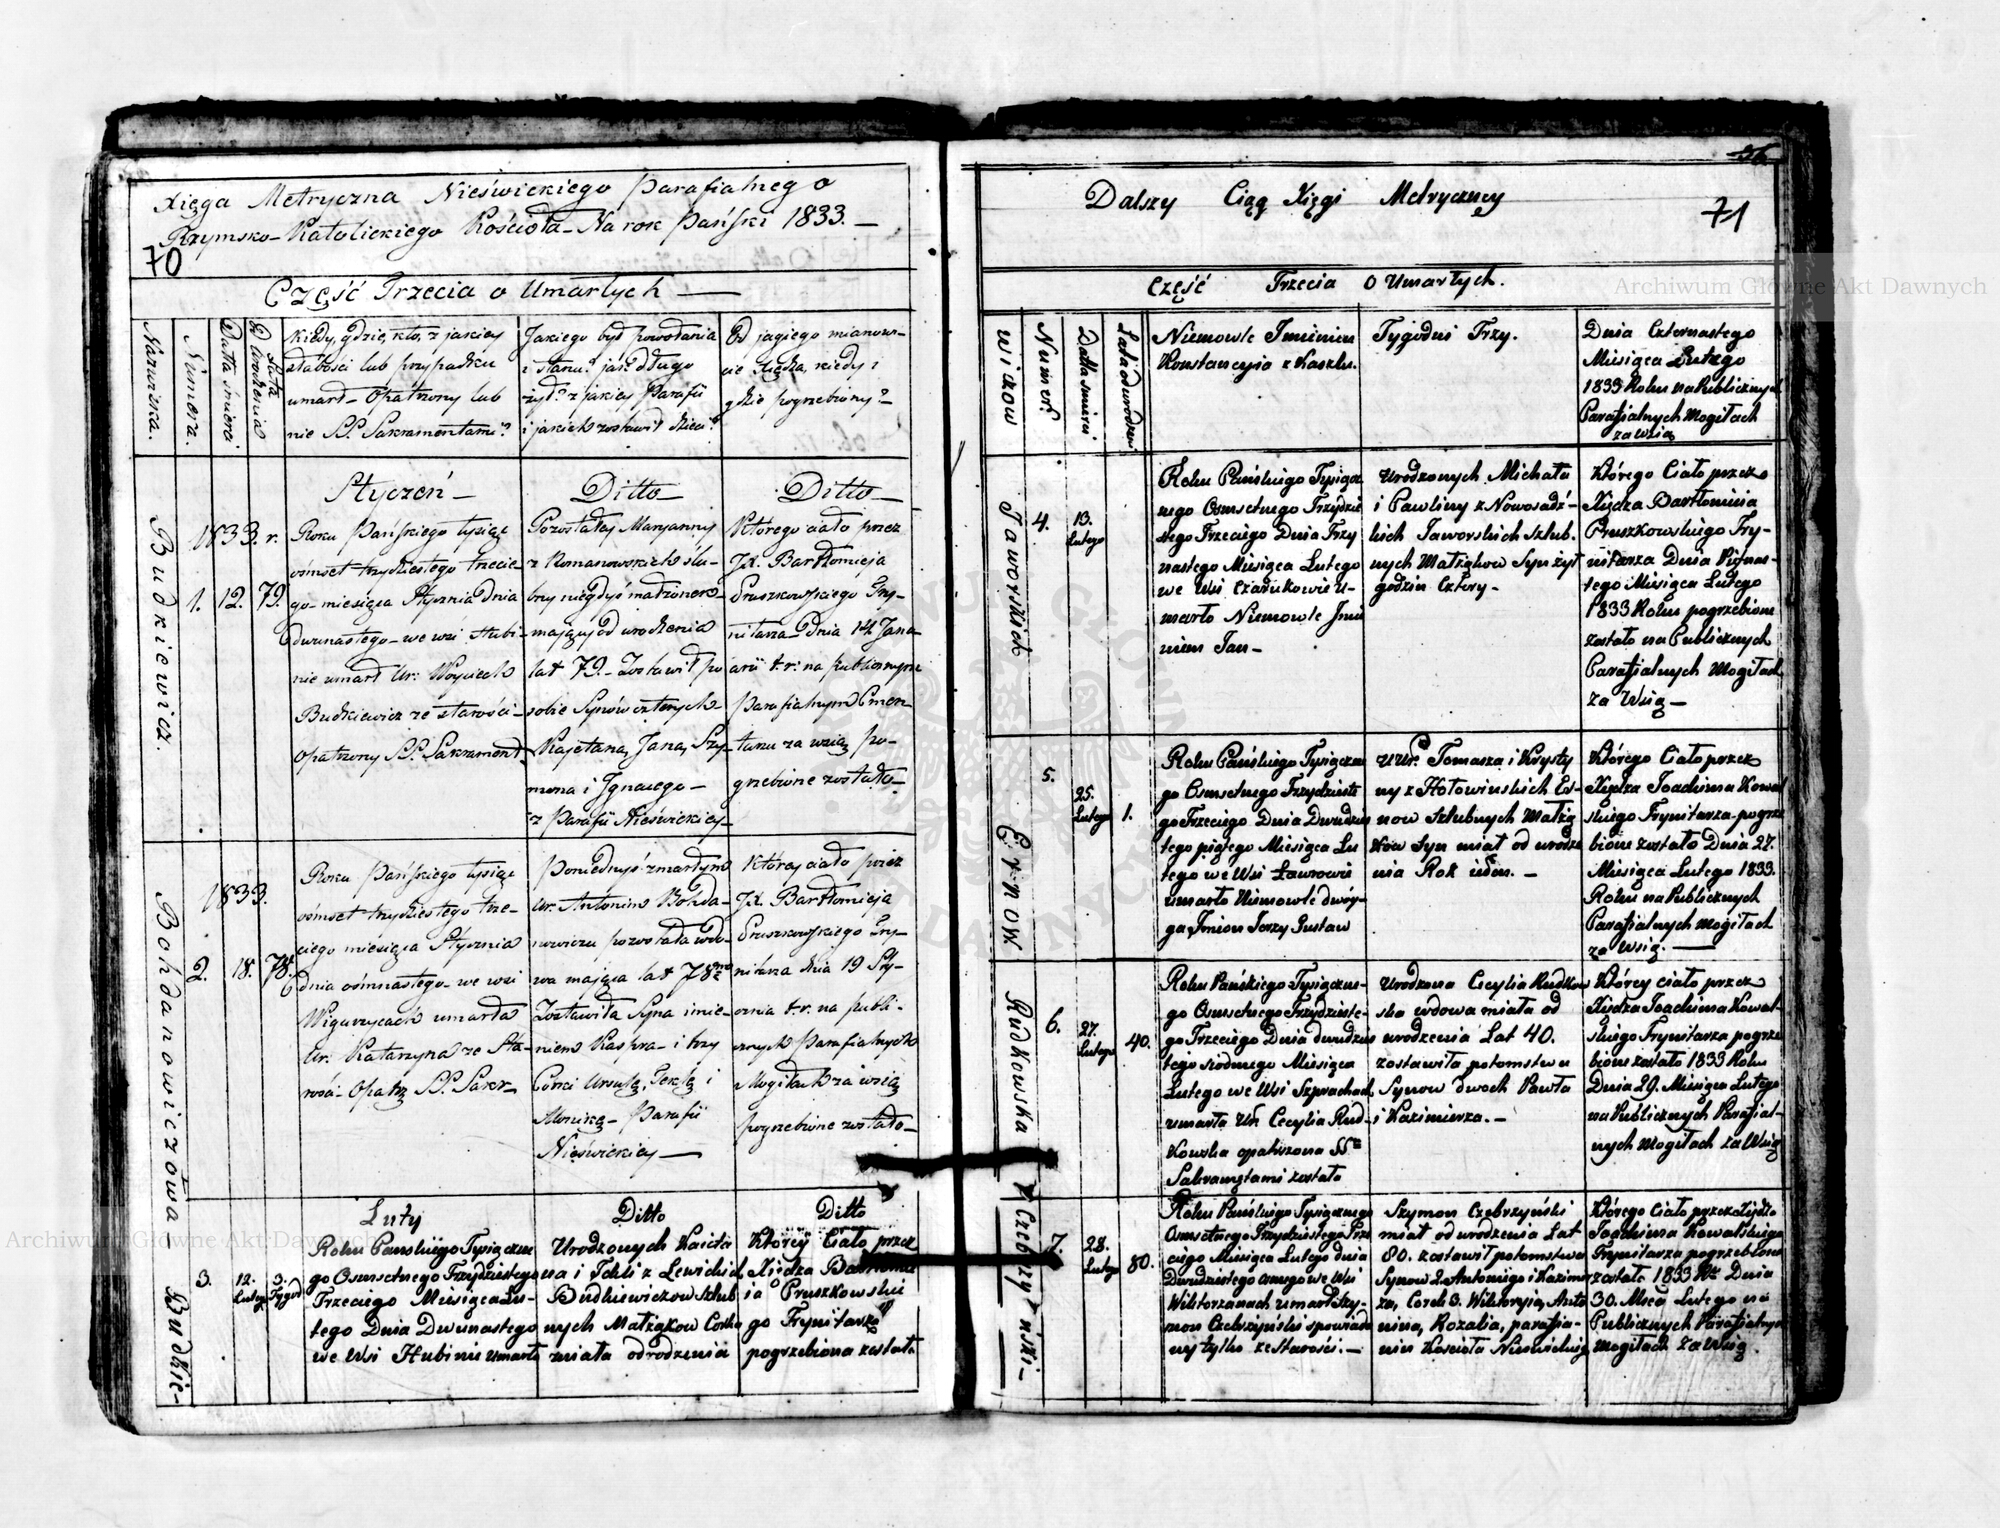 Xięga Metryczna Nieświckiego Parafialnego
Rzymsko-Katolickiego Kościoła Na rok Pański 1833.
70
Część Trzecia o Umarłych
Nazwiska.
Numera.
Datta śmierci
Lata
Urodzenia
Kiedy, gdzie, kto, z jakiey
słabości lub przypadku
umarł Opatrzony lub
nie SS. Sakramentami?
Jakiego był powołania
i stanu? jak długo
żył? z jakiey Parafii
i jakich zostawił dzieci?
Od jagiego mianowi-
cie Xiędza, kiedy i
gdzie pogrzebiony?
Budkiewicz.
1833. r.
1.
12.
79.
Styczeń
Roku Pańskiego tysiąc
ośmset trzydziestego trzecie-
go miesiąca Stycznia Dnia
dwunastego we wsi Hubi-
nie umarł Ur: Woyciech
Budkiewicz ze starości
Opatrzony SS. Sakrament.
Ditto
Pozostałey Maryanny
z Romanowskich ślu-
bny niegdyś małżonek
mający od urodzenia
lat 79. Zostawił po
sobie Synów czterych
Kajetana, Jana, Szy-
mona i Ignacego
z Parafii Nieświckiey
Ditto
Którego ciało przez
JX. Bartłomieja
Pruszkowskiego Try-
nitarza Dnia 14 Janu-
arii t. r. na publicznym
Parafialnym Cmen-
tarzu za wsią po-
grzebione zostało
Bohdanowiczowa
1833.
2.
18.
78.
Roku Pańskiego tysiąc
ośmset trzydziestego trze-
ciego miesiąca Stycznia
dnia ośmnastego we wsi
umarła
Ur. Katarzyna ze Sta-
rości Opatrz SS. Sakr
Poniedyś zmarłym
Ur. Antonim Bohda-
nowiczu pozostała wdo-
wa mająca lat 78
Zostawiła Syna imie-
niem Kaspra i trzy
Córki Urszulę, Teklę i
Parafii
Nieświckiey
Którey ciało przez
JX. Bartłomieja
Pruszkowskiego Try-
nitarza dnia 19 Sty-
cznia t. r. na publi-
cznych Parafialnych
Mogiłach za wsią
pogrzebione zostało
Budkie-
3.
12.
Lutego
3.
Tygod
Luty
Roku Pańskiego Tysiączne
go Osmsetnego Trzydziestego
Trzeciego Miesiąca Lu-
tego Dnia Dwunastego
we Wsi Hubinie umarło
Ditto
Urodzonych Kajeta
na i Tekli z Lewickich
Budkiewiczow szlub
nych Małżąkow Corka
miała od rodzenia
Ditto
Którey Ciało przez
Xiędza Bartłomie
ia Pruszkowskie
go Trynitarza
pogrzebiona została
36
Dalszy Ciąg Xięgi Metryczney
71
Część Trzecia o Umarłych.
wiczow
Numer.
Datta śmierci
Lata od urodzeni
Niemowle Imieniem
Konstancyia z Kaszlu.
Tygodni Trzy.
Dnia Czternastego
Miesiąca Lutego
1833 Roku na Publicznych
Parafialnych Mogiłach
za wsią
Jaworskich
4.
13.
Lutego
Roku Pańskiego Tysiącz
nego Osmsetnego Trzydzie
stego Trzeciego Dnia Trzy
nastego Miesiąca Lutego
we Wsi Czarukowie u-
marło Niemowle Jmie
niem Jan
Urodzonych Michała
i Pawliny z Nowosadź-
kich Jaworskich szlub.
nych Małżąkow Syn żył
godzin Cztery
Którego Ciało przez
Xiędza Bartłomieia
Pruszkowskiego Try-
nitarza Dnia Pietnas-
tego Miesiąca Lutego
1833 Roku pogrzebione
zostało na Publicznych
Parafialnych Mogiłach
za Wsią
Ernow
5.
25.
Lutego
1.
Roku Pańskiego Tysiączne
go Osmsetnego Trzydzieste
go Trzeciego Dnia Dwudzies
tego piątego Miesiąca Lu
tego we Wsi Ławrowie
umarło Niemowle dwóy-
ga Jmion Jerzy Gustaw
UUr. Tomasza i Krysty
ny z Hołowinskich Er-
now Szlubnych Małżą
Kow Syn miał od urodze
nia Rok ieden.
Którego Ciało przez
Xiędza Joachima Kowal
skiego Trynitarza pogrze
bione zostało Dnia 27.
Miesiąca Lutego 1833.
Roku na Publicznych
Parafialnych mogiłach
za Wsią.
Rudkowska
6.
27.
Lutego
40.
Roku Pańskiego Tysiączne-
go Osmsetnego Trzydzieste-
go Trzeciego Dnia dwudzies
tego siodmego Miesiąca
Lutego we Wsi Szprachach
umarła Ur. Cecylia Rud-
Kowska opatrzona SS
Sakramętami została
Urodzona Cecylia Rudkow
ska wdowa miała od
urodzenia Lat 40.
zostawiła potomstwu
Synow dwoch Pawła
i Kazimierza.
Którey ciało przez
Xiędza Joachima Kowal-
skiego Trynitarza pogrze
bione zostało 1833 Roku
Dnia 29. Miesiąca Lutego
na Publicznych Parafial-
nych mogiłach za Wsią
Czebrzyński
7.
28.
Lutego
80.
Roku Pańskiego Tysiącznego
Osmsetnego Trzydziestego Trze
ciego Miesiąca Lutego dnia
Dwudziestego osmego we Wsi
Wiktorzanach umarł Szy-
mon Czebrzyński spowiada
ny tylko ze starości.
Szymon Czebrzyński
miał od urodzenia Lat
80. zostawił potomstwa
Synow 2. Antoniego i Kazimie
rza, Corek 3. Wiktoryia, Anto
nina, Rozalia, parafia-
nin Kosciola Nieswickiego
Którego Ciało przez Xiędza
Joachima Kowalskiego
Trynitarza pogrzebione
zostało 1833 Rku Dnia
30. Msca Lutego na
Publicznych Parafialnych
mogiłach za Wsią.
Archiwum Główne Akt Dawnych
Archiwum Główne Akt Dawnych